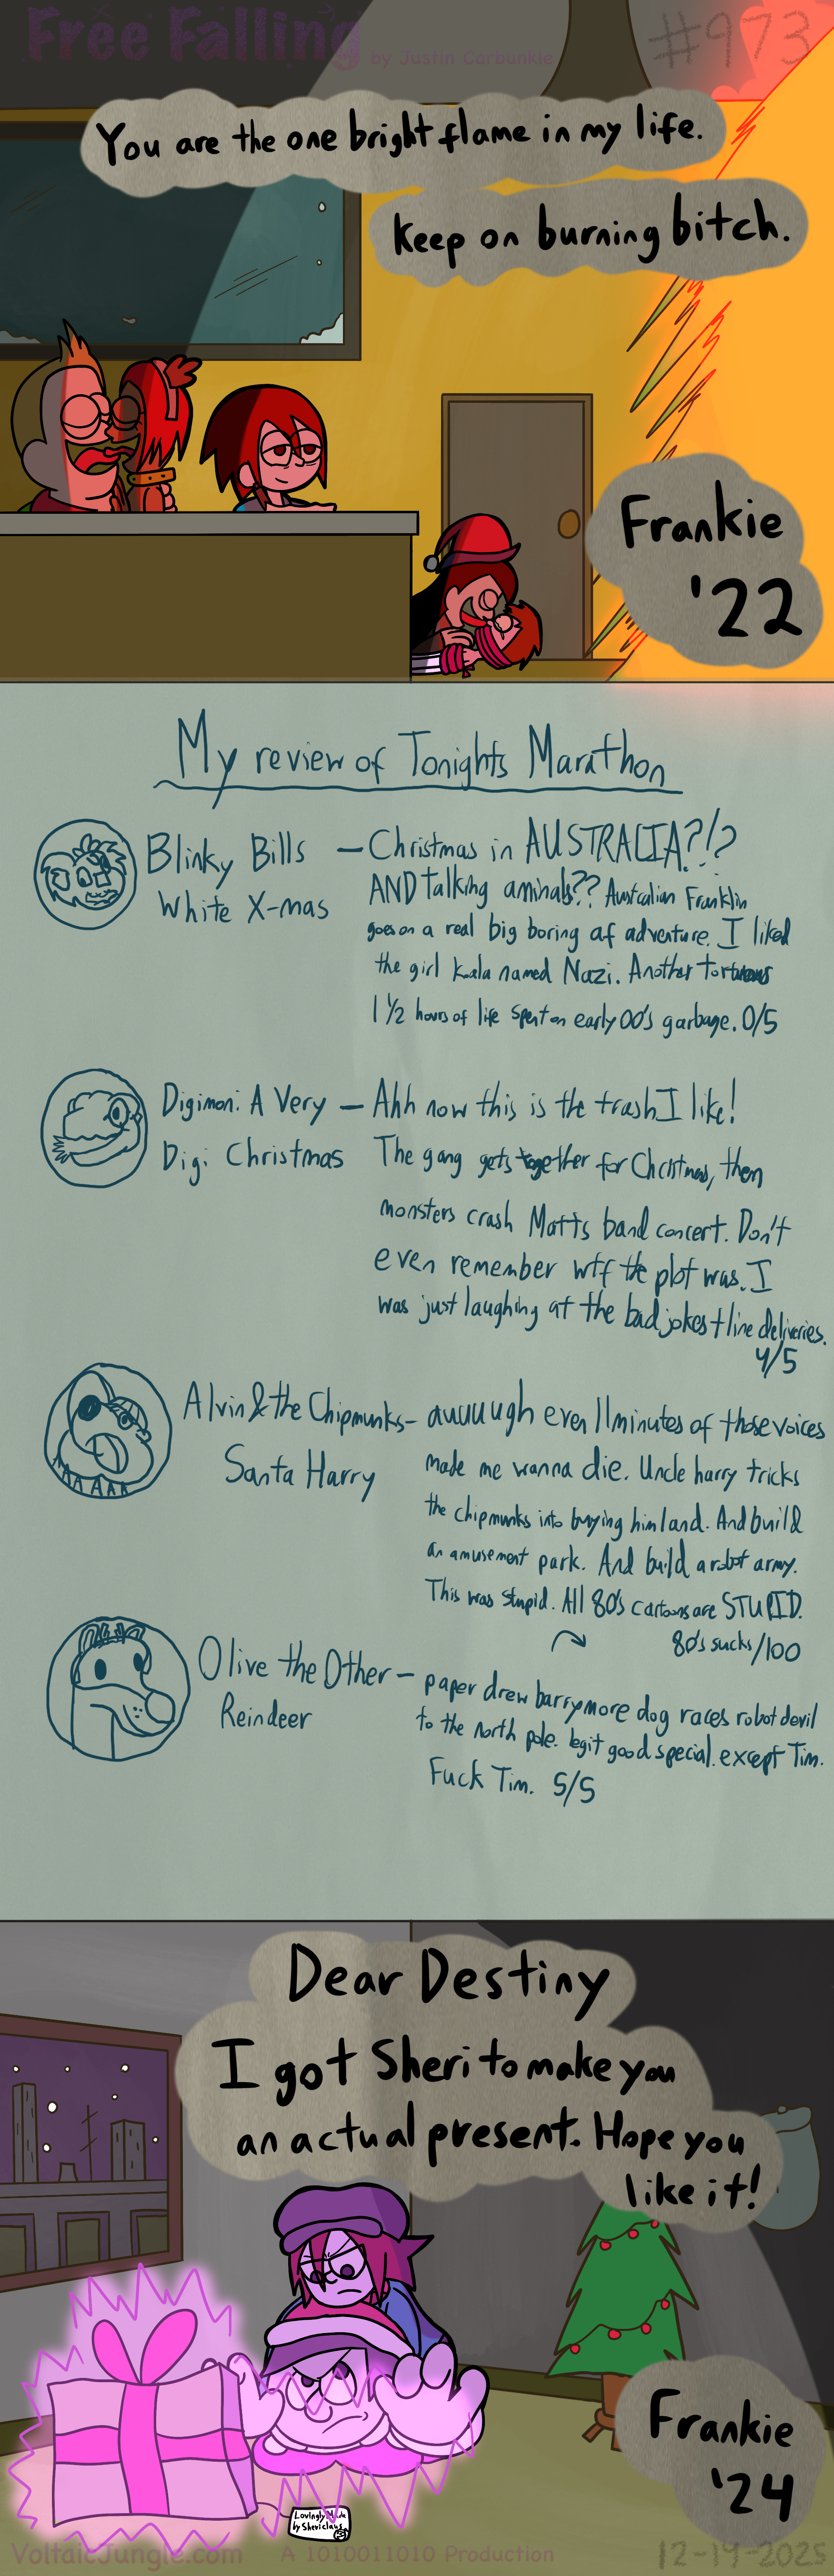 Free Falling by Justin Carbunkle #973
You are the one bright flame in my life.
Keep on burning bitch.
Frankie
'22
My review of Tonights Marathon
Blinky Bills — Christmas in AUSTRALIA?!?
White X-mas AND talking aminals?? Australian Franklin
goes on a real big boring af adventure. I liked
the girl koala named Nazi. Another torturous
1 1/2 hours of life spent on early 00's garbage. 0/5
Digimon: A Very — Ahh now this is the trash I like!
Digi Christmas The gang gets together for Christmas, then
monsters crash Matts band concert. Don't
even remember wtf the plot was. I
was just laughing at the bad jokes + line deliveries.
4/5
Alvin & the Chipmunks — auuuugh even 11 minutes of those voices
Santa Harry made me wanna die. Uncle harry tricks
the chipmunks into buying him land. And build
an amusement park. And build a robot army.
This was stupid. All 80's cartoons are STUPID.
80's sucks/100
Olive the Other — paper drew barrymore dog races robot devil
Reindeer to the north pole. legit good special. except Tim.
Fuck Tim. 5/5
Dear Destiny
I got Sheri to make you
an actual present. Hope you
like it!
Frankie
'24
Lovingly Made
by Shericlaus
VoltaicJungle.com A 1010011010 Production 12-19-2025